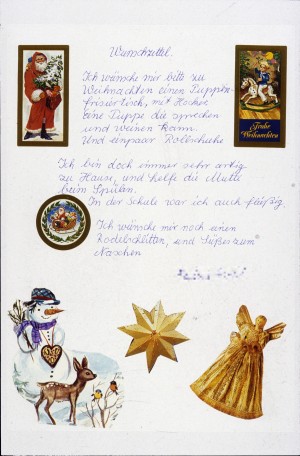 Wunschzettel.
Ich wünsche mir bitte zu
Weihnachten einen Puppen-
frisiertisch, mit Hocker
eine Puppe die sprechen
und weinen kann.
Und einpaar Rolerschuhe
Frohe
Weihnachten
Ich bin doch immer sehr artig
zu Haus, und helfe die Mutti
beim Spülen.
In der Schule war ich auch fleißig.
Ich wünsche mir noch einen
Rodelschlitten, und süßes zum
Naschen